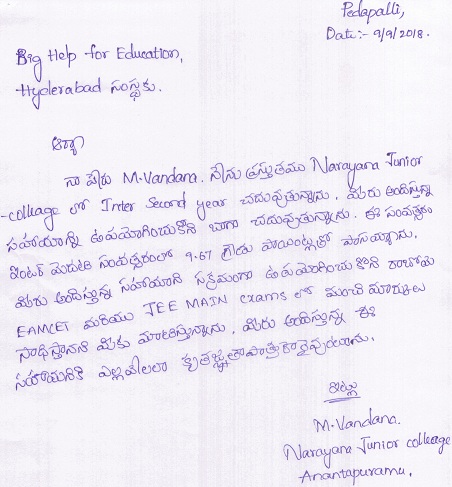 Pedapalli,
Date:- 9/9/2018.
Big Help for Education,
Hyderabad సంస్థకు.
ఆర్యా
నా పేరు M.Vandana. నేను ప్రస్తుతము Narayana Junior
colleage లో Inter Second year చదువుతున్నాను. మీరు అందిస్తున్న
సహాయాన్ని ఉపయోగించుకొని బాగా చదువుతున్నాను. ఈ సంవత్సరం
ఇంటర్ మొదటి సంవత్సరంలో 9.67 గ్రేడు పాయింట్లతో పాసయ్యాను.
మీరు అందిస్తున్న సహాయాని సక్రమంగా ఉపయోగించుకొని రాబోయే
EAMCET మరియు JEE MAIN exams లో మంచి మార్కులు
సాధిస్తానని మీకు మాటిస్తున్నాను. మీరు అందిస్తున్న ఈ
సహాయనికి ఎల్లవేలలా కృతజ్ఞతాపాత్రురాలైవుంటాను.
ఇట్లు
M.Vandana.
Narayana Junior colleage
Anantapuramu.